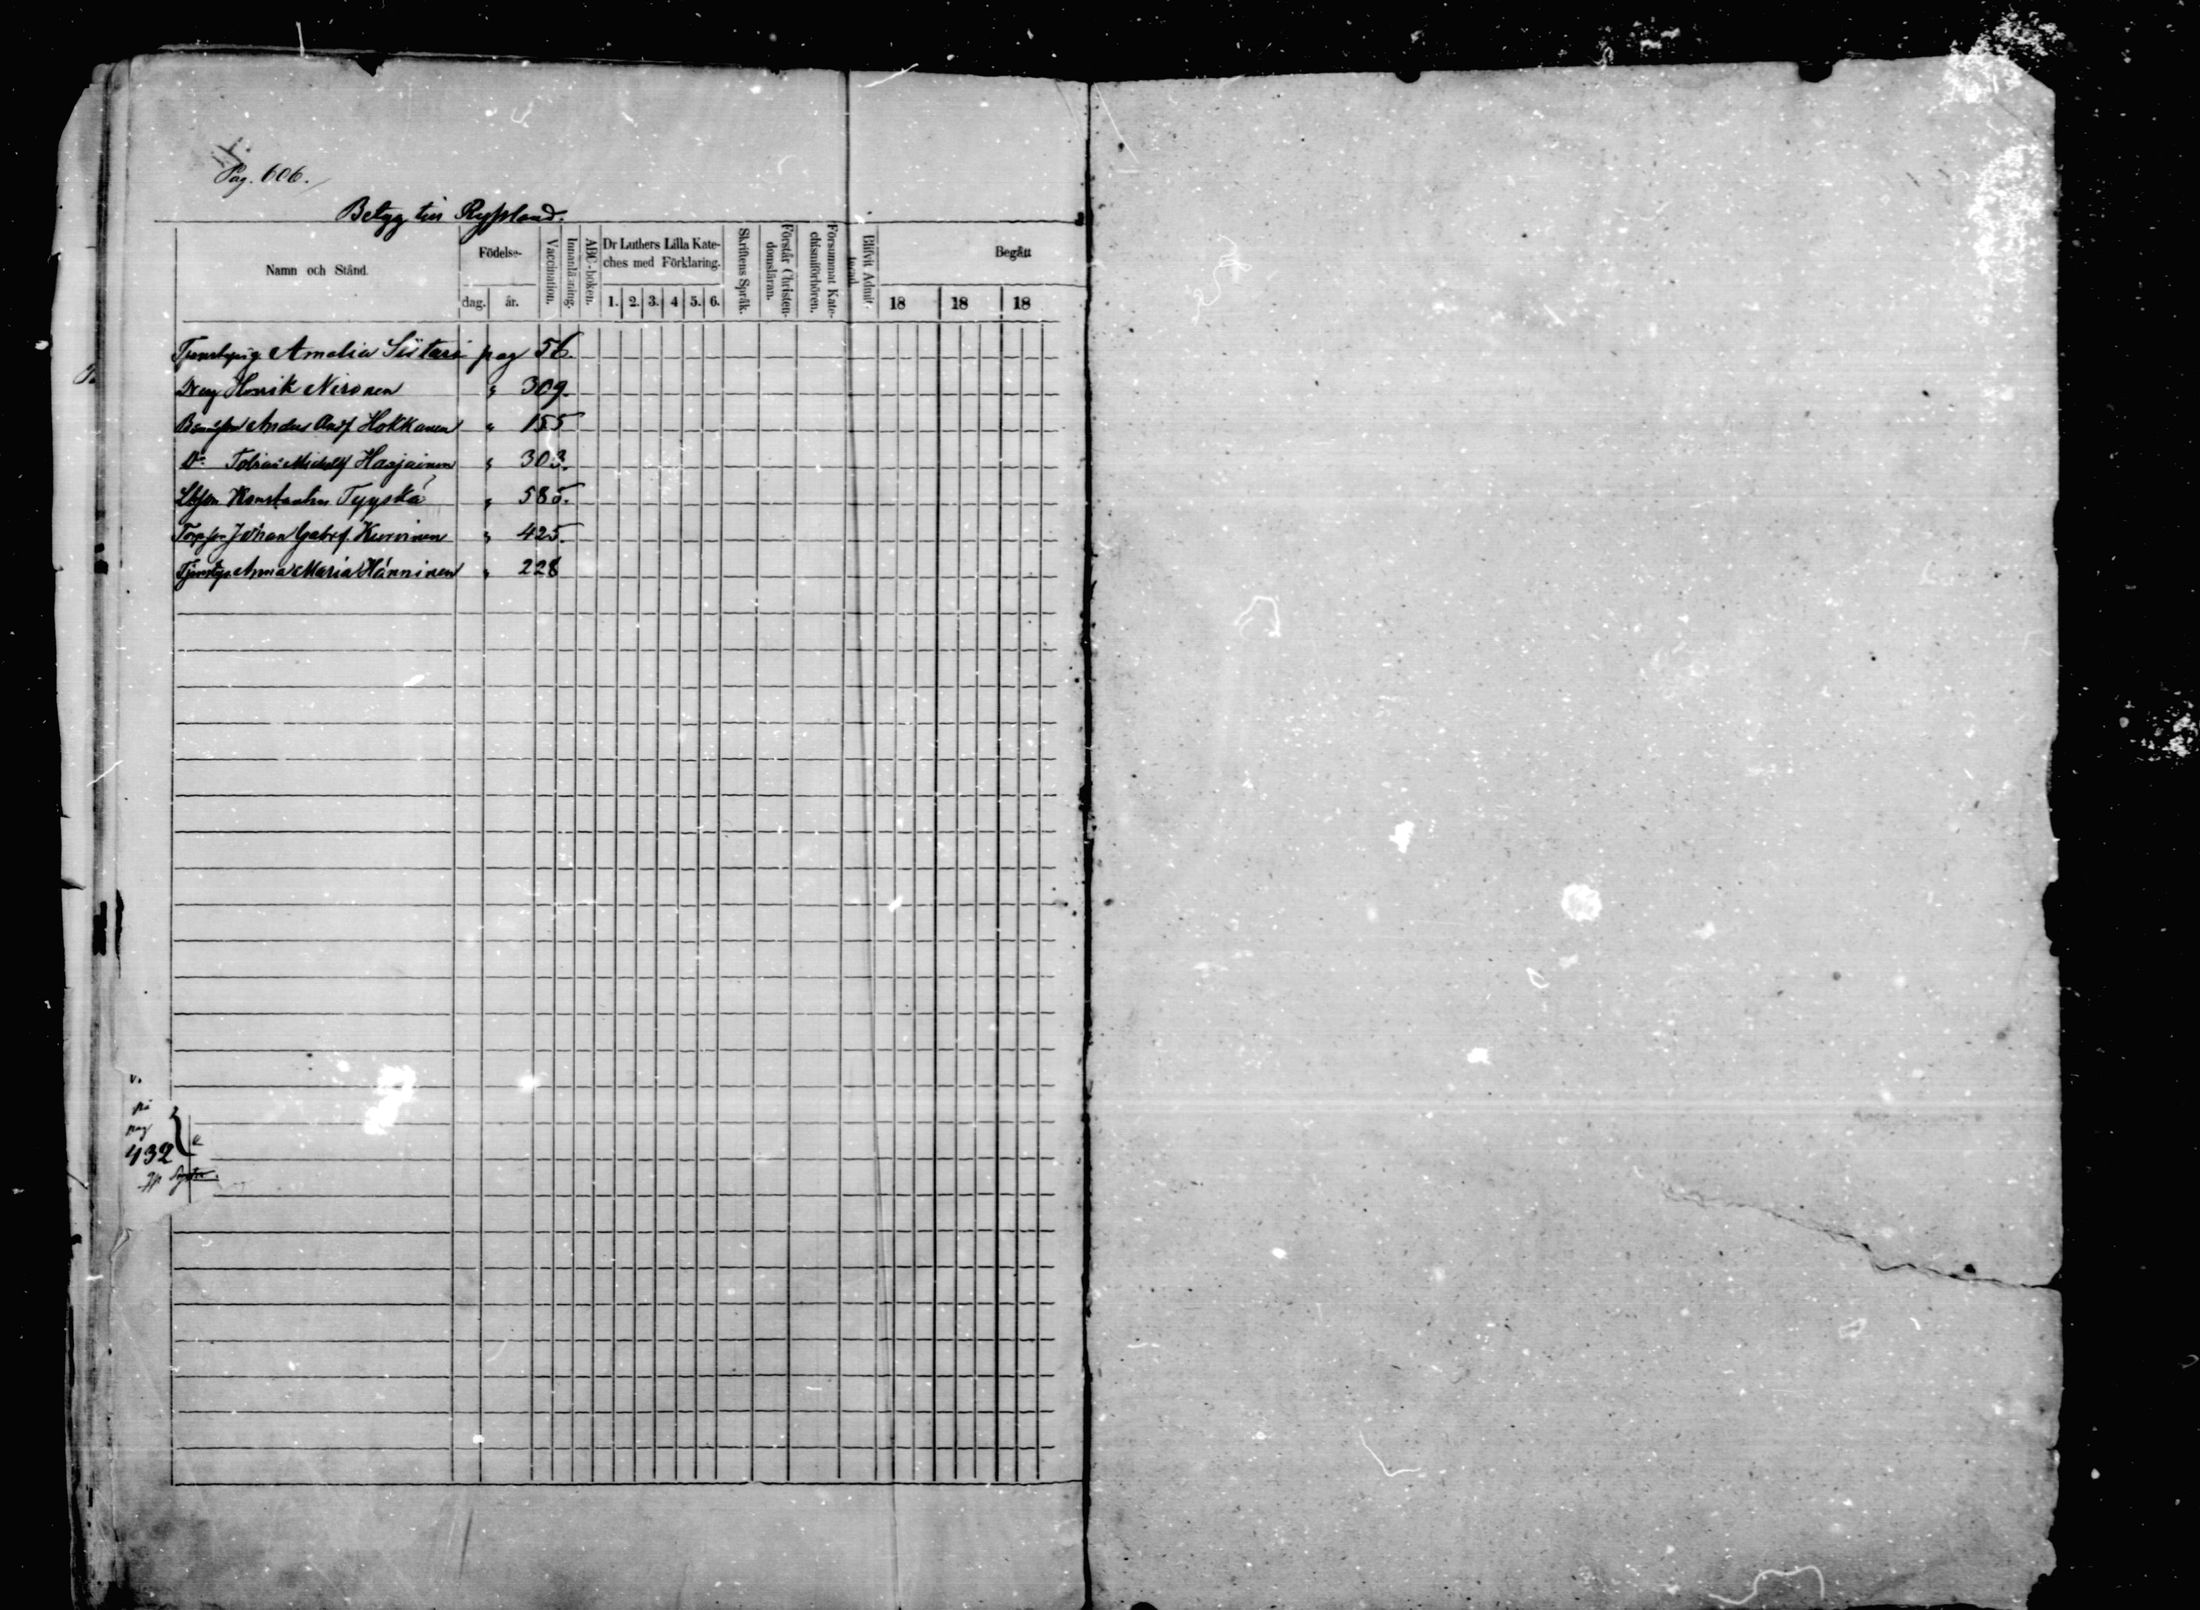 Pag. 606.
Betyg till Ryssland.
Namn och Stånd.
Födelse-
dag. år.
Vaccination.
Innanläsning.
ABC-boken.
Dr Luthers Lilla Kate-
ches med Förklaring.
1. 2. 3. 4 5. 6.
Skriftens Språk.
Förstår Christen-
domsläran.
Försummat Kate-
chismiförhören.
Blifvit Admit-
Begått
18 18 18
Amalia Siitari pag 56.
Dreng Henrik Nironen " 309.
Anders Andsf Hokkanen " 155
Do Tobias Michelsf Harjainen " 303.
Konstantin Tyyskä " 585.
Johan Gabrsf. Kurvinen " 425.
Anna Maria Hänninen " 228
v.
på
pag
432